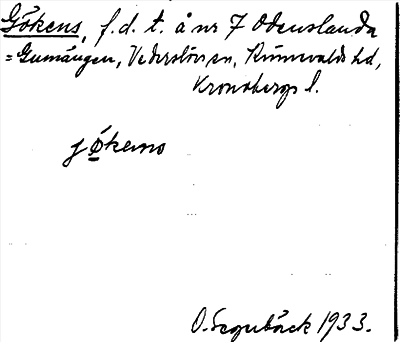 Gökens, f.d. t. å nr 7 Odenslanda
= Gumängen, Vederslövs sn, Kinnevalds hd,
Kronobergs l.
jökens
O. Segerbäck 1933.